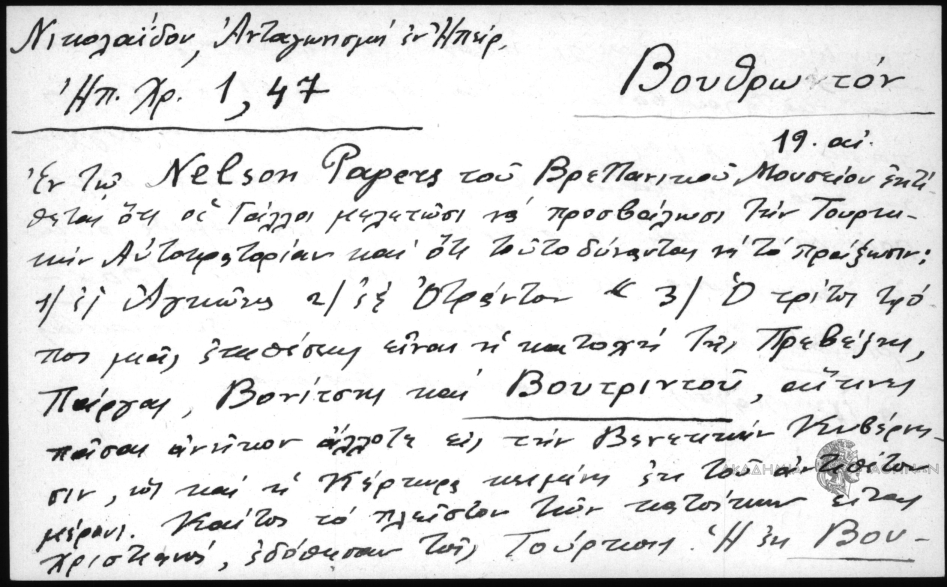 Νικολαΐδου, Ἀνταγωνισμοὶ ἐν Ἠπείρ.
Ἠπ. Χρ. 1, 47
Βουθρωτόν
19. αἰ.
Ἐν τῷ Nelson Papers τοῦ Βρεττανικοῦ Μουσείου ἐκτί-
θεται ὅτι οἱ Γάλλοι μελετῶσι νὰ προσβάλωσι τὴν Τουρκι-
κὴν Αὐτοκρατορίαν καὶ ὅτι τοῦτο δύνανται νὰ τὸ πράξωσιν:
1/ ἐξ Ἀγκῶνος 2/ ἐξ Ὀτράντου " 3/ Ὁ τρίτος τρό-
πος μιᾶς ἐπιθέσεως εἶναι ἡ κατοχὴ τῆς Πρεβέζης,
Πάργας, Βονίτσης καὶ Βουτριντοῦ, αἵτινες
πᾶσαι ἀνῆκον ἄλλοτε εἰς τὴν Βενετικὴν Κυβέρνη-
σιν, ὡς καὶ ἡ Κέρκυρα κειμένη ἐκ τοῦ ἀντιθέτου
μέρους. Καίτοι τὸ πλεῖστον τῶν κατοίκων εἶναι
Χριστιανοί, ἐδόθησαν τοῖς Τούρκοις. Ἡ ἐκ Βου-
ΑΚΑΔΗΜΙΑ ΑΘΗΝΩΝ